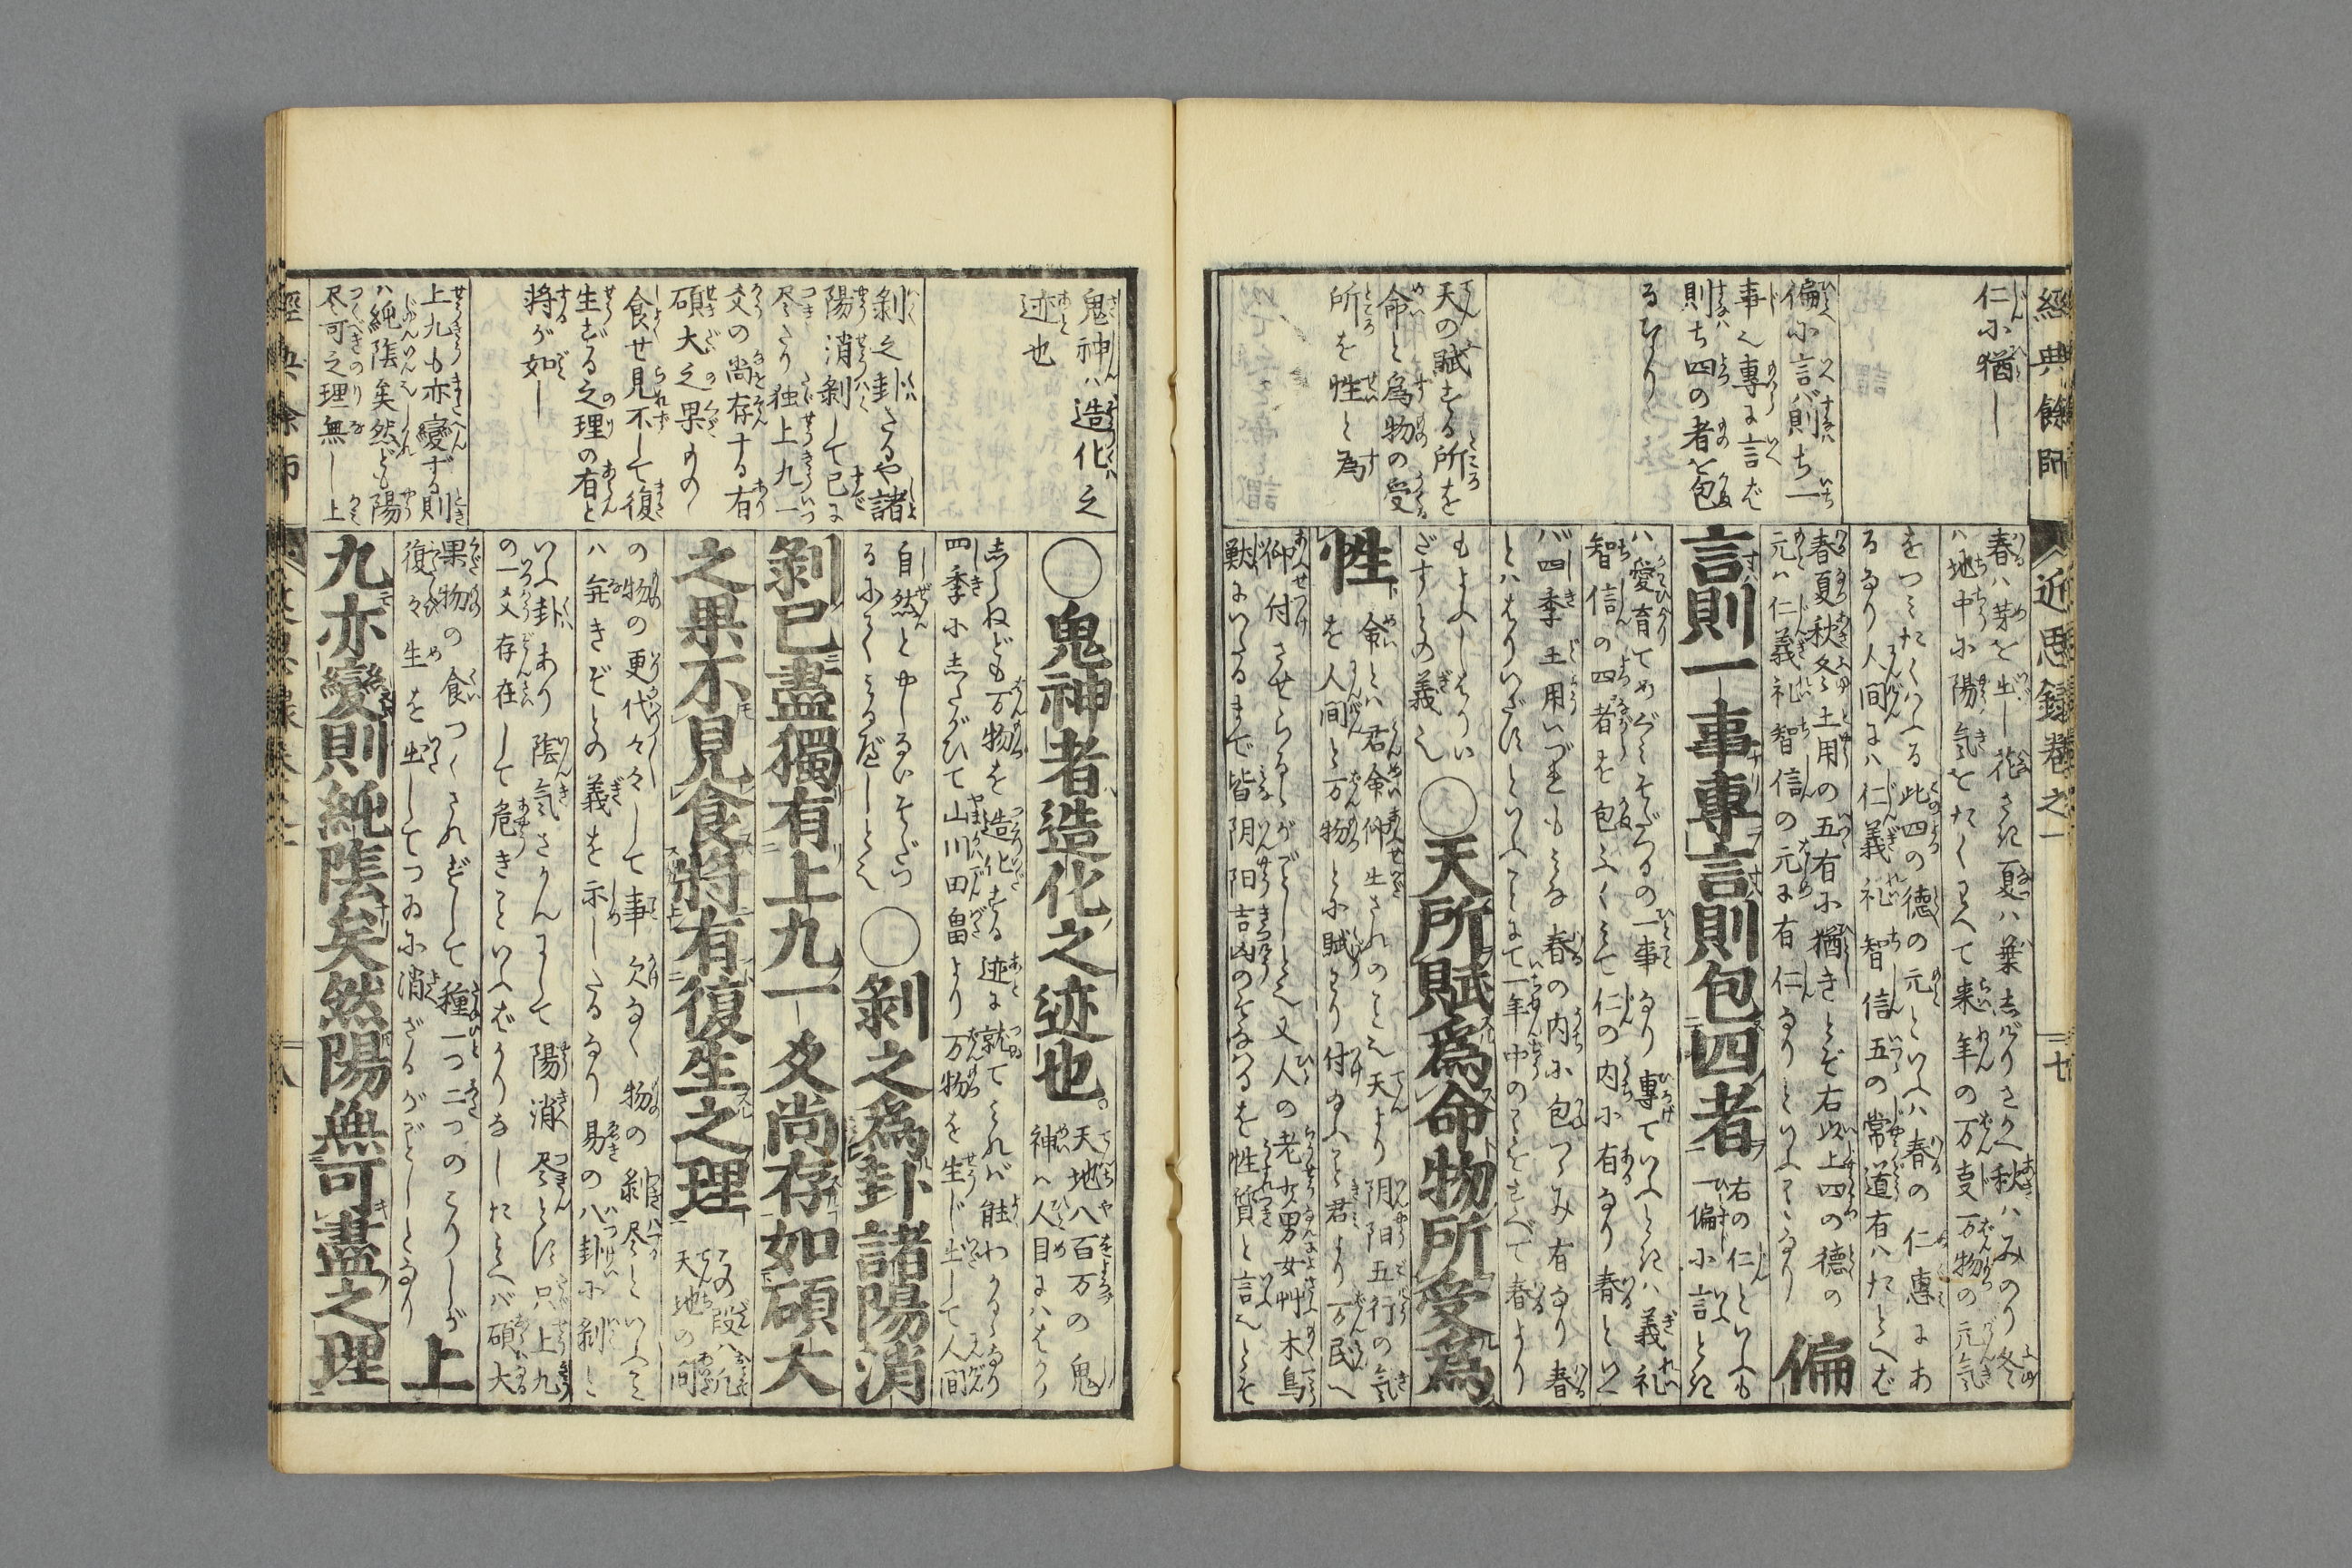 經典餘師
近思録卷之一
七
仁に猶し
偏に言バ則ち一
事之專に言ば
則ち四の者を包
るなり
天の賦する所を
命と為物の受
所を性と為
春ハ芽を出し花さき夏ハ葉しげりさかへ秋ハみのり冬
ハ地中に陽気をたくわへて来年の万支万物の元気
をつゝミたくわふる此四の徳の元といふハ春の仁恵にあ
るなり人間にハ仁義礼智信五の常道有ハたとへば
春夏秋冬土用の五有に猶きとぞ右以上四の徳の
元ハ仁義礼智信の元に有仁なりといふことなり
偏
言則一事專言則包四者
右の仁といふも
一偏に言とき
ハ愛育てめぐミそだつるの一事なり專ていふときハ義礼
智信の四者を包ふくミて仁の内に有なり春といへ
バ四季土用いづれもミな春の内に包つゝみ有なり春
とハはりいだすといふことにて一年中のことをすべて春より
もよふしはりい
ざすとの義也
○天所賦爲命物所受爲
性
命とハ君命仰生されのこと也天より阴阳五行の気
を人間と万物とに賦くばり付ゐふこと君より万民へ
仰付させらるゝがごとしと也又人の老少男女艸木鳥
獣にいたるまで皆阴阳吉凶のそなハるを性質と言へとぞ
鬼神ハ造化之
迹也
剝之卦たるや諸
陽消剝して已に
尽たり独上九一
爻の尚存する有
碩大之果ものゝ
食せ見不して復
生ずる之理の有と
将が如し
上九も亦變ずる則
ハ純陰矣然ども陽
尽可之理無し上
○鬼神者造化之迹也。
天地八百万の鬼
神ハ人目にハはかり
しらねども万物を造化する迹に就てミれバ能わかるなり
四季にしたがひて山川田畠より万物を生じ出して人間
自然とやしなひそだつ
るにてミるべしと也
○剝之爲卦諸陽消
剝已盡獨有上九一爻尚存如碩大
之果不見食將有復生之理
この段ハ凡
天地の間
の物の更代々々して事欠なく物の剝尽といふこと
ハ無きぞとの義を示したるなり易の八卦に剝と
いふ卦あり陰気さかんにして陽消尽とす只上九
の一爻存在して危きことといふばかりなしたとへバ碩大
果物の食つくされずして種一つ二つのこりしが
復々生を出してつゐに消ざるがごとしとなり
上
九亦變則純陰矣然陽無可盡之理
八